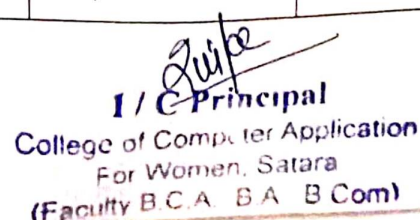 I / C Principal
College of Computer Application
For Women, Satara
(Faculty B.C.A. B.A B Com)